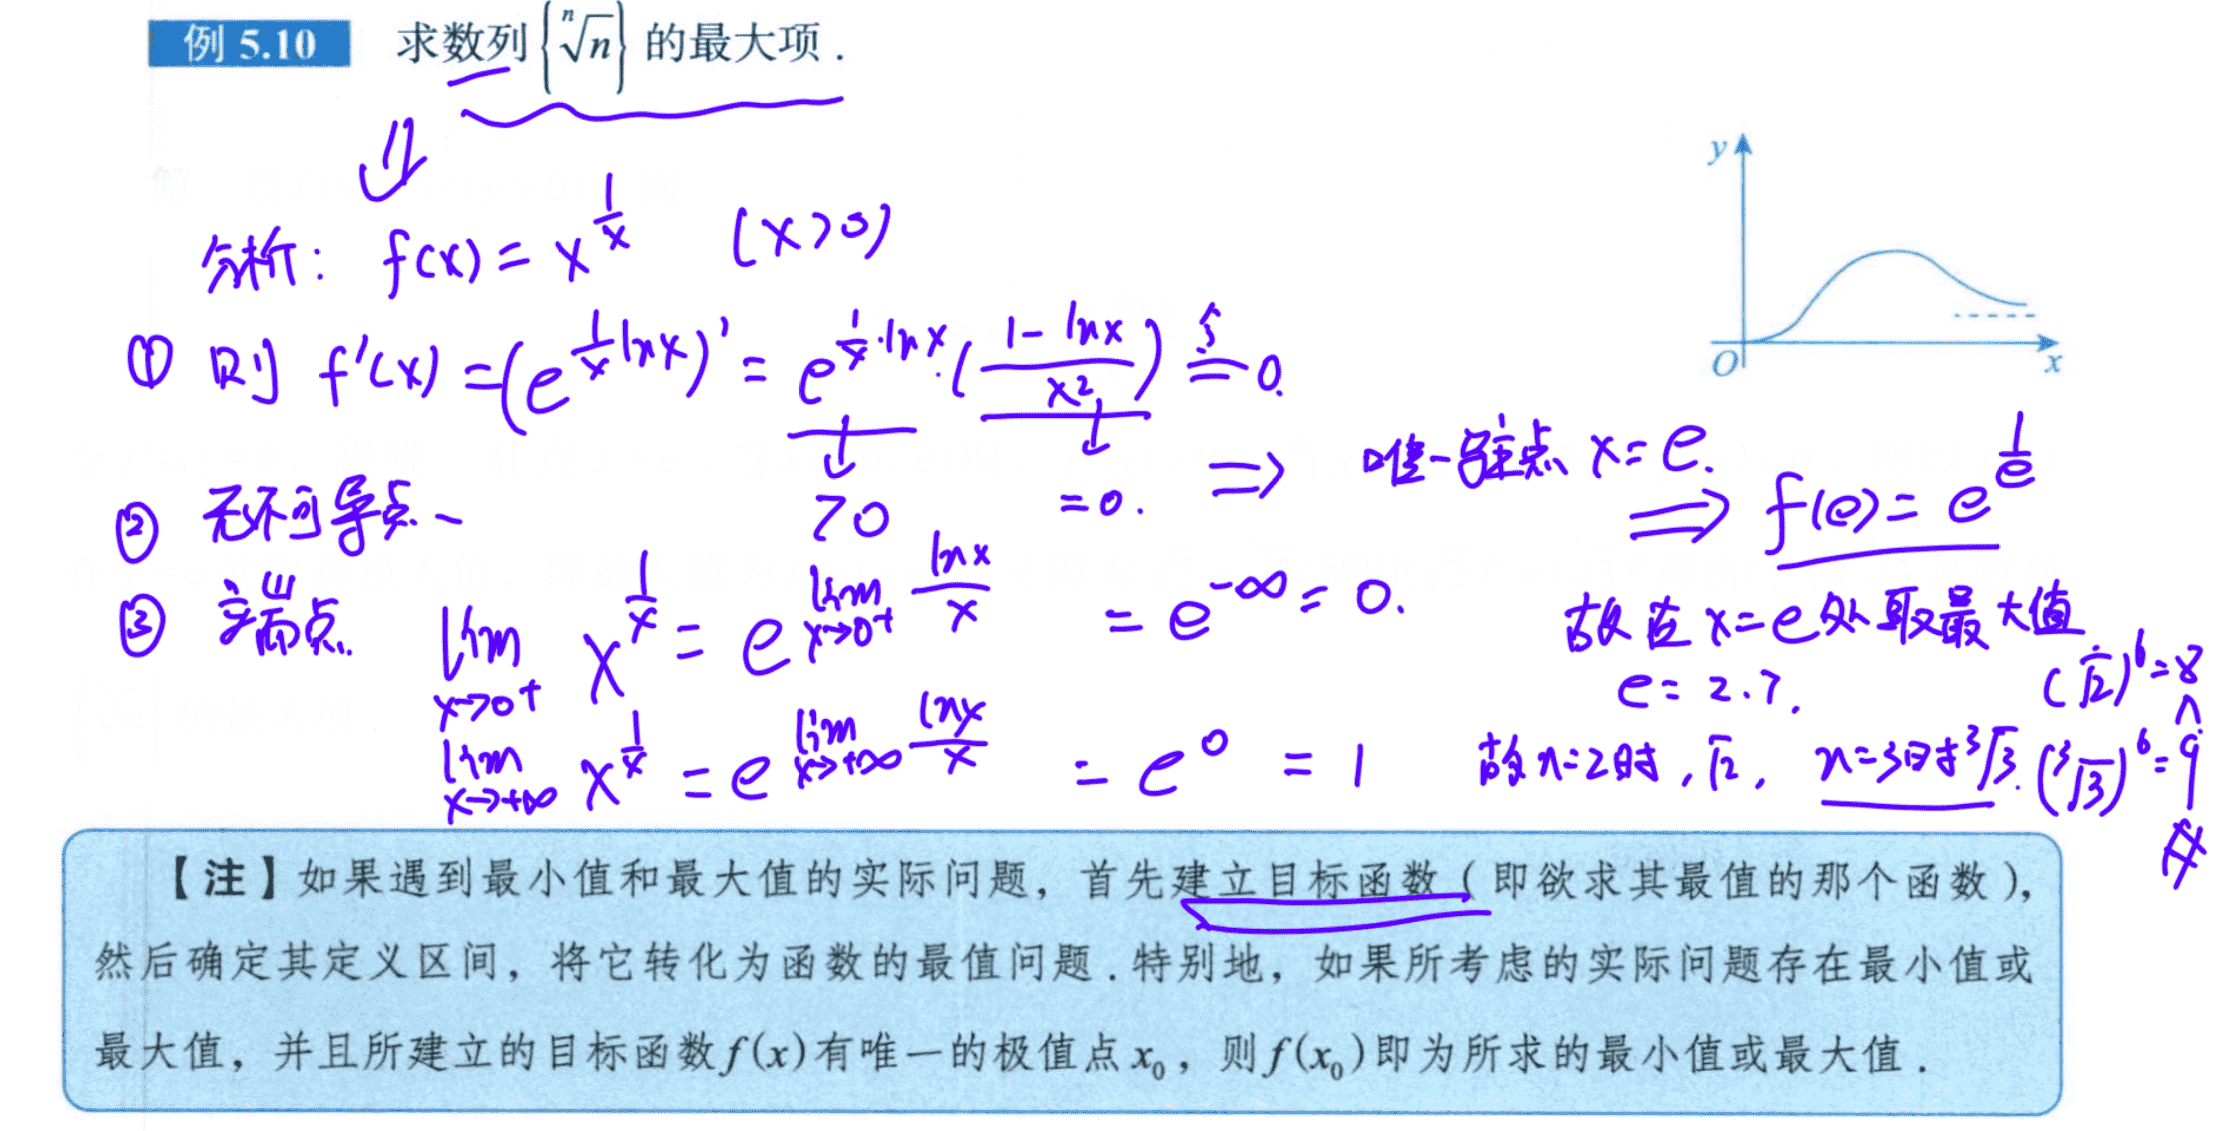 例 5.10 求数列{ⁿ√n}的最大项.
分析: f(x) = x^{1/x} (x>0)
① 则 f'(x) = (e^{1/x lnx})' = e^{1/x·lnx}·((1-lnx)/x²) 令= 0.
>0 =0. ⇒ 唯一驻点 x=e. ⇒ f(e) = e^{1/e}
② 无不可导点
③ 端点 lim_{x→0+} x^{1/x} = e^{lim_{x→0+} lnx/x} = e^{-∞} = 0.
lim_{x→+∞} x^{1/x} = e^{lim_{x→+∞} lnx/x} = e^0 = 1
故在 x=e处取最大值
e = 2.7.
故n=2时, √2, n=3时 ³√3.
(√2)^6 = 8
∧
(³√3)^6 = 9
#
y
O
x
【注】如果遇到最小值和最大值的实际问题，首先建立目标函数(即欲求其最值的那个函数)，
然后确定其定义区间，将它转化为函数的最值问题.特别地，如果所考虑的实际问题存在最小值或
最大值，并且所建立的目标函数f(x)有唯一的极值点x₀，则f(x₀)即为所求的最小值或最大值.